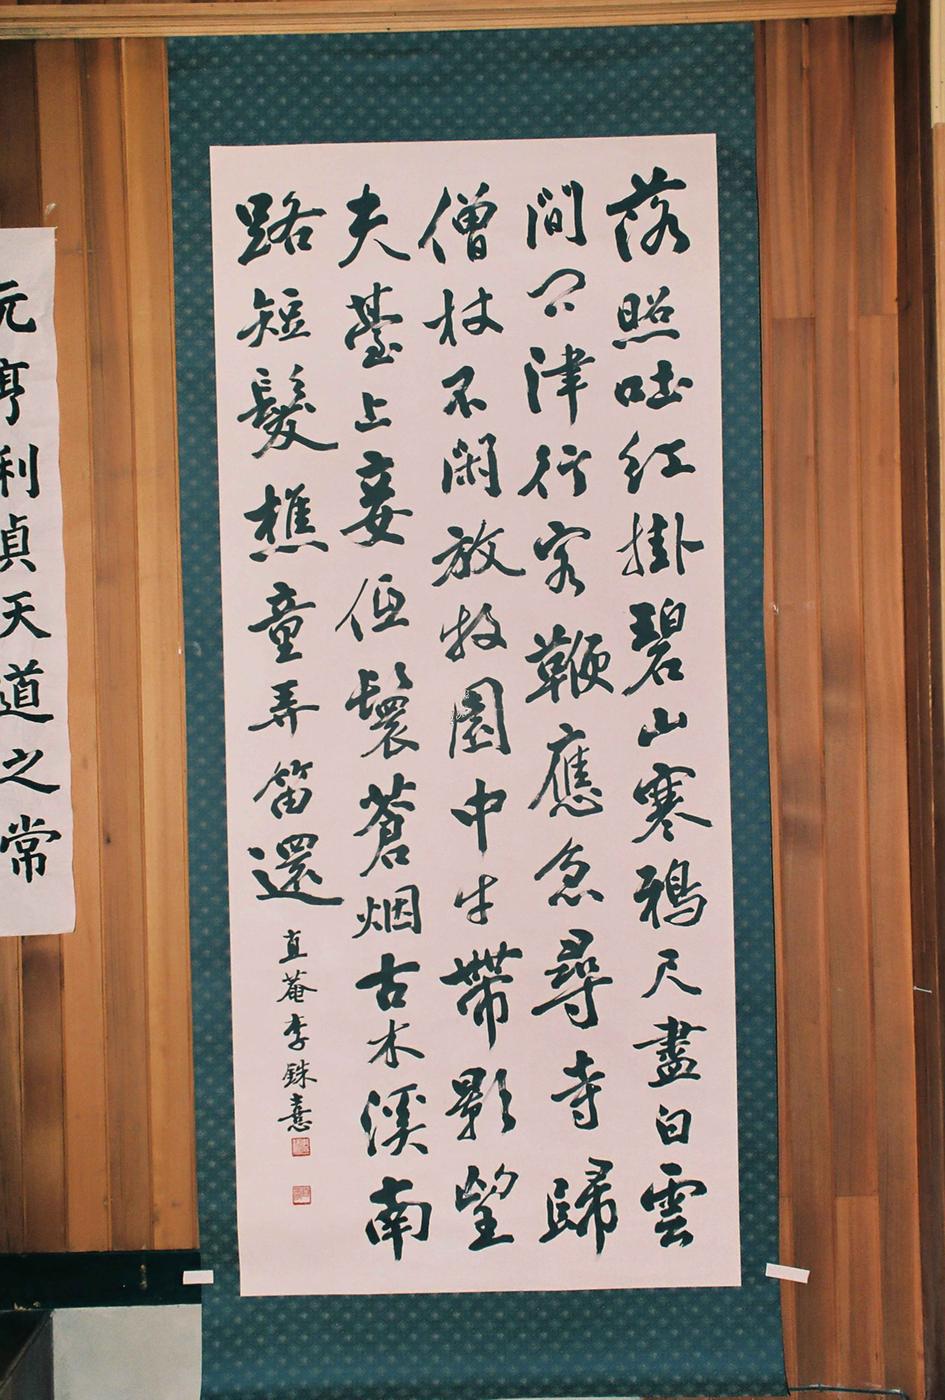 落照吐紅掛碧山寒鴉尺盡白雲
間問津行客鞭應急尋寺歸
僧杖不閑放牧園中牛帶影望
夫臺上妾低鬟蒼烟古木溪南
路短髮樵童弄笛還
直菴李銖憙
元亨利貞天道之常